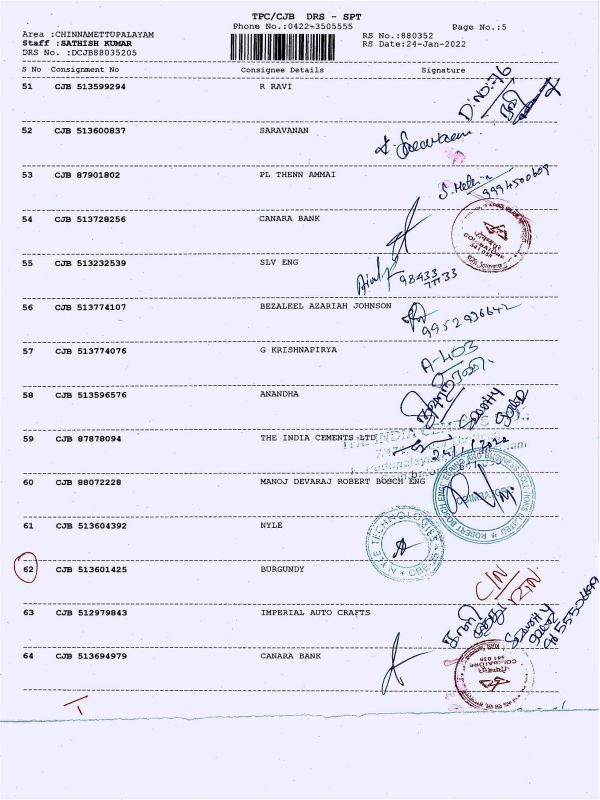 TPC/CJB DRS - SPT
Phone No.:0422-3505555
Page No.:5
Area :CHINNAMETTUPALAYAM
Staff :SATHISH KUMAR
DRS No. :DCJB88035205
RS No.:880352
RS Date:24-Jan-2022
S No Consignment No Consignee Details Signature
51 CJB 513599294 R RAVI
D.NO:76
52 CJB 513600837 SARAVANAN
53 CJB 87901802 PL THENN AMMAI
9994500609
54 CJB 513728256 CANARA BANK
COIMBATORE
641 038
55 CJB 513232539 SLV ENG
98433
77133
56 CJB 513774107 BEZALEEL AZARIAH JOHNSON
9952936642
57 CJB 513774076 G KRISHNAPIRYA
A-403
58 CJB 513596576 ANANDHA
59 CJB 87878094 THE INDIA CEMENTS LTD
THE INDIA CEMENTS
24/1/2022
60 CJB 88072228 MANOJ DEVARAJ ROBERT BOSCH ENG
ROBERT BOSCH ENGINEERING AND BUSINESS SOLUTIONS
61 CJB 513604392 NYLE
NYLE TECHNOLOGIES
62 CJB 513601425 BURGUNDY
C/N
RTN
63 CJB 512979843 IMPERIAL AUTO CRAFTS
64 CJB 513694979 CANARA BANK
COIMBATORE
641 038